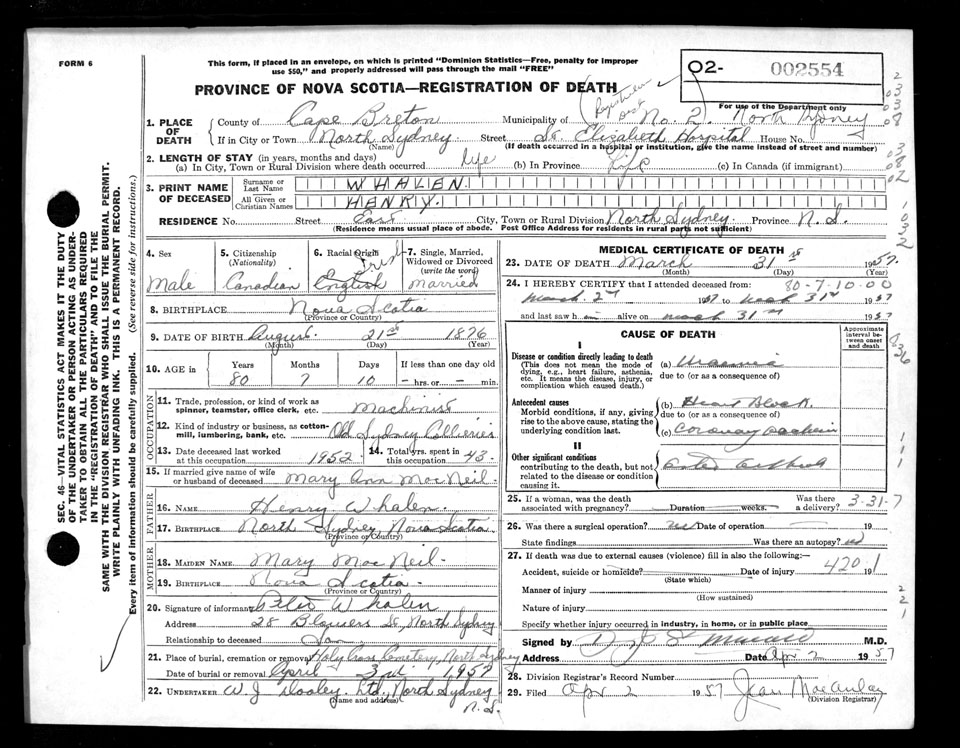 FORM 6
This form, if placed in an envelope, on which is printed "Dominion Statistics—Free, penalty for improper
use $50," and properly addressed will pass through the mail "FREE"
O2- 002554
For use of the Department only
PROVINCE OF NOVA SCOTIA—REGISTRATION OF DEATH
1. PLACE OF DEATH
County of Cape Breton Municipality of No. 2. North Sydney
If in City or Town North Sydney. Street St. Elizabeth Hospital House No.
(Name) (If death occurred in a hospital or institution, give the name instead of street and number)
2. LENGTH OF STAY (in years, months and days)
(a) In City, Town or Rural Division where death occurred life (b) In Province Life (c) In Canada (if immigrant)
3. PRINT NAME OF DECEASED
Surname or Last Name WHALEN.
All Given or Christian Names HENRY.
RESIDENCE No. Street East City, Town or Rural Division North Sydney. Province N.S.
(Residence means usual place of abode. Post Office Address for residents in rural parts not sufficient)
4. Sex Male
5. Citizenship (Nationality) Canadian
6. Racial Origin English Irish
7. Single, Married, Widowed or Divorced (write the word) Married
8. BIRTHPLACE Nova Scotia
(Province or Country)
9. DATE OF BIRTH August 21st 1876
(Month) (Day) (Year)
10. AGE in Years 80 Months 7 Days 10 If less than one day old — hrs. or — min.
OCCUPATION
11. Trade, profession, or kind of work as spinner, teamster, office clerk, etc. Machinist
12. Kind of industry or business, as cotton-mill, lumbering, bank, etc. Old Sydney Collieries
13. Date deceased last worked at this occupation 1952 14. Total yrs. spent in this occupation 43.
15. If married give name of wife or husband of deceased Mary Ann MacNeil.
FATHER
16. NAME Henry Whalen.
17. BIRTHPLACE North Sydney, Nova Scotia.
(Province or Country)
MOTHER
18. MAIDEN NAME Mary MacNeil.
19. BIRTHPLACE Nova Scotia.
(Province or Country)
20. Signature of informant Peter Whalen
Address 28 Blowers St, North Sydney
Relationship to deceased Son.
21. Place of burial, cremation or removal Holy Cross Cemetery, North Sydney
Date of burial or removal April 3rd 1957
22. UNDERTAKER W. J. Dooley Ltd, North Sydney N.S.
(Name and address)
MEDICAL CERTIFICATE OF DEATH
23. DATE OF DEATH March 31st 1957.
(Month) (Day) (Year)
24. I HEREBY CERTIFY that I attended deceased from: 80-7-10-00
March 2nd 1957 to March 31st 1957
and last saw him alive on March 31st 1957
CAUSE OF DEATH
Approximate interval between onset and death
I
Disease or condition directly leading to death
(This does not mean the mode of dying, e.g., heart failure, asthenia, etc. It means the disease, injury, or complication which caused death.)
(a) Uraemia
due to (or as a consequence of)
Antecedent causes
Morbid conditions, if any, giving rise to the above cause, stating the underlying condition last.
(b) Heart Block.
due to (or as a consequence of)
(c) Coronary
II
Other significant conditions
contributing to the death, but not related to the disease or condition causing it.
25. If a woman, was the death associated with pregnancy? Duration weeks. Was there a delivery? 3-31-7
26. Was there a surgical operation? no Date of operation 19
State findings Was there an autopsy? no
27. If death was due to external causes (violence) fill in also the following:—
Accident, suicide or homicide? Date of injury 420.1 19
(State which)
Manner of injury
(How sustained)
Nature of injury
Specify whether injury occurred in industry, in home, or in public place
Signed by M.D.
Address Date Apr 2 1957
28. Division Registrar's Record Number
29. Filed Apr 2 1957 Jean MacAulay
(Division Registrar)
SEC. 46—VITAL STATISTICS ACT MAKES IT THE DUTY
OF THE UNDERTAKER OR PERSON ACTING AS UNDER-
TAKER TO OBTAIN ALL THE PARTICULARS REQUIRED
IN THE "REGISTRATION OF DEATH" AND TO FILE THE
SAME WITH THE DIVISION REGISTRAR WHO SHALL ISSUE THE BURIAL PERMIT.
WRITE PLAINLY WITH UNFADING INK. THIS IS A PERMANENT RECORD.
Every item of information should be carefully supplied. (See reverse side for instructions.)